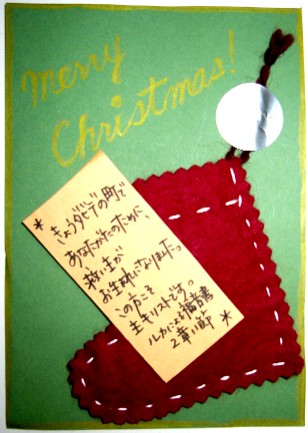 Merry
Christmas!
* きょうダビデの町で
あなたがたのために、
救い主が
お生まれになりました。
この方こそ
主キリストです。
ルカによる福音書
2章11節 *